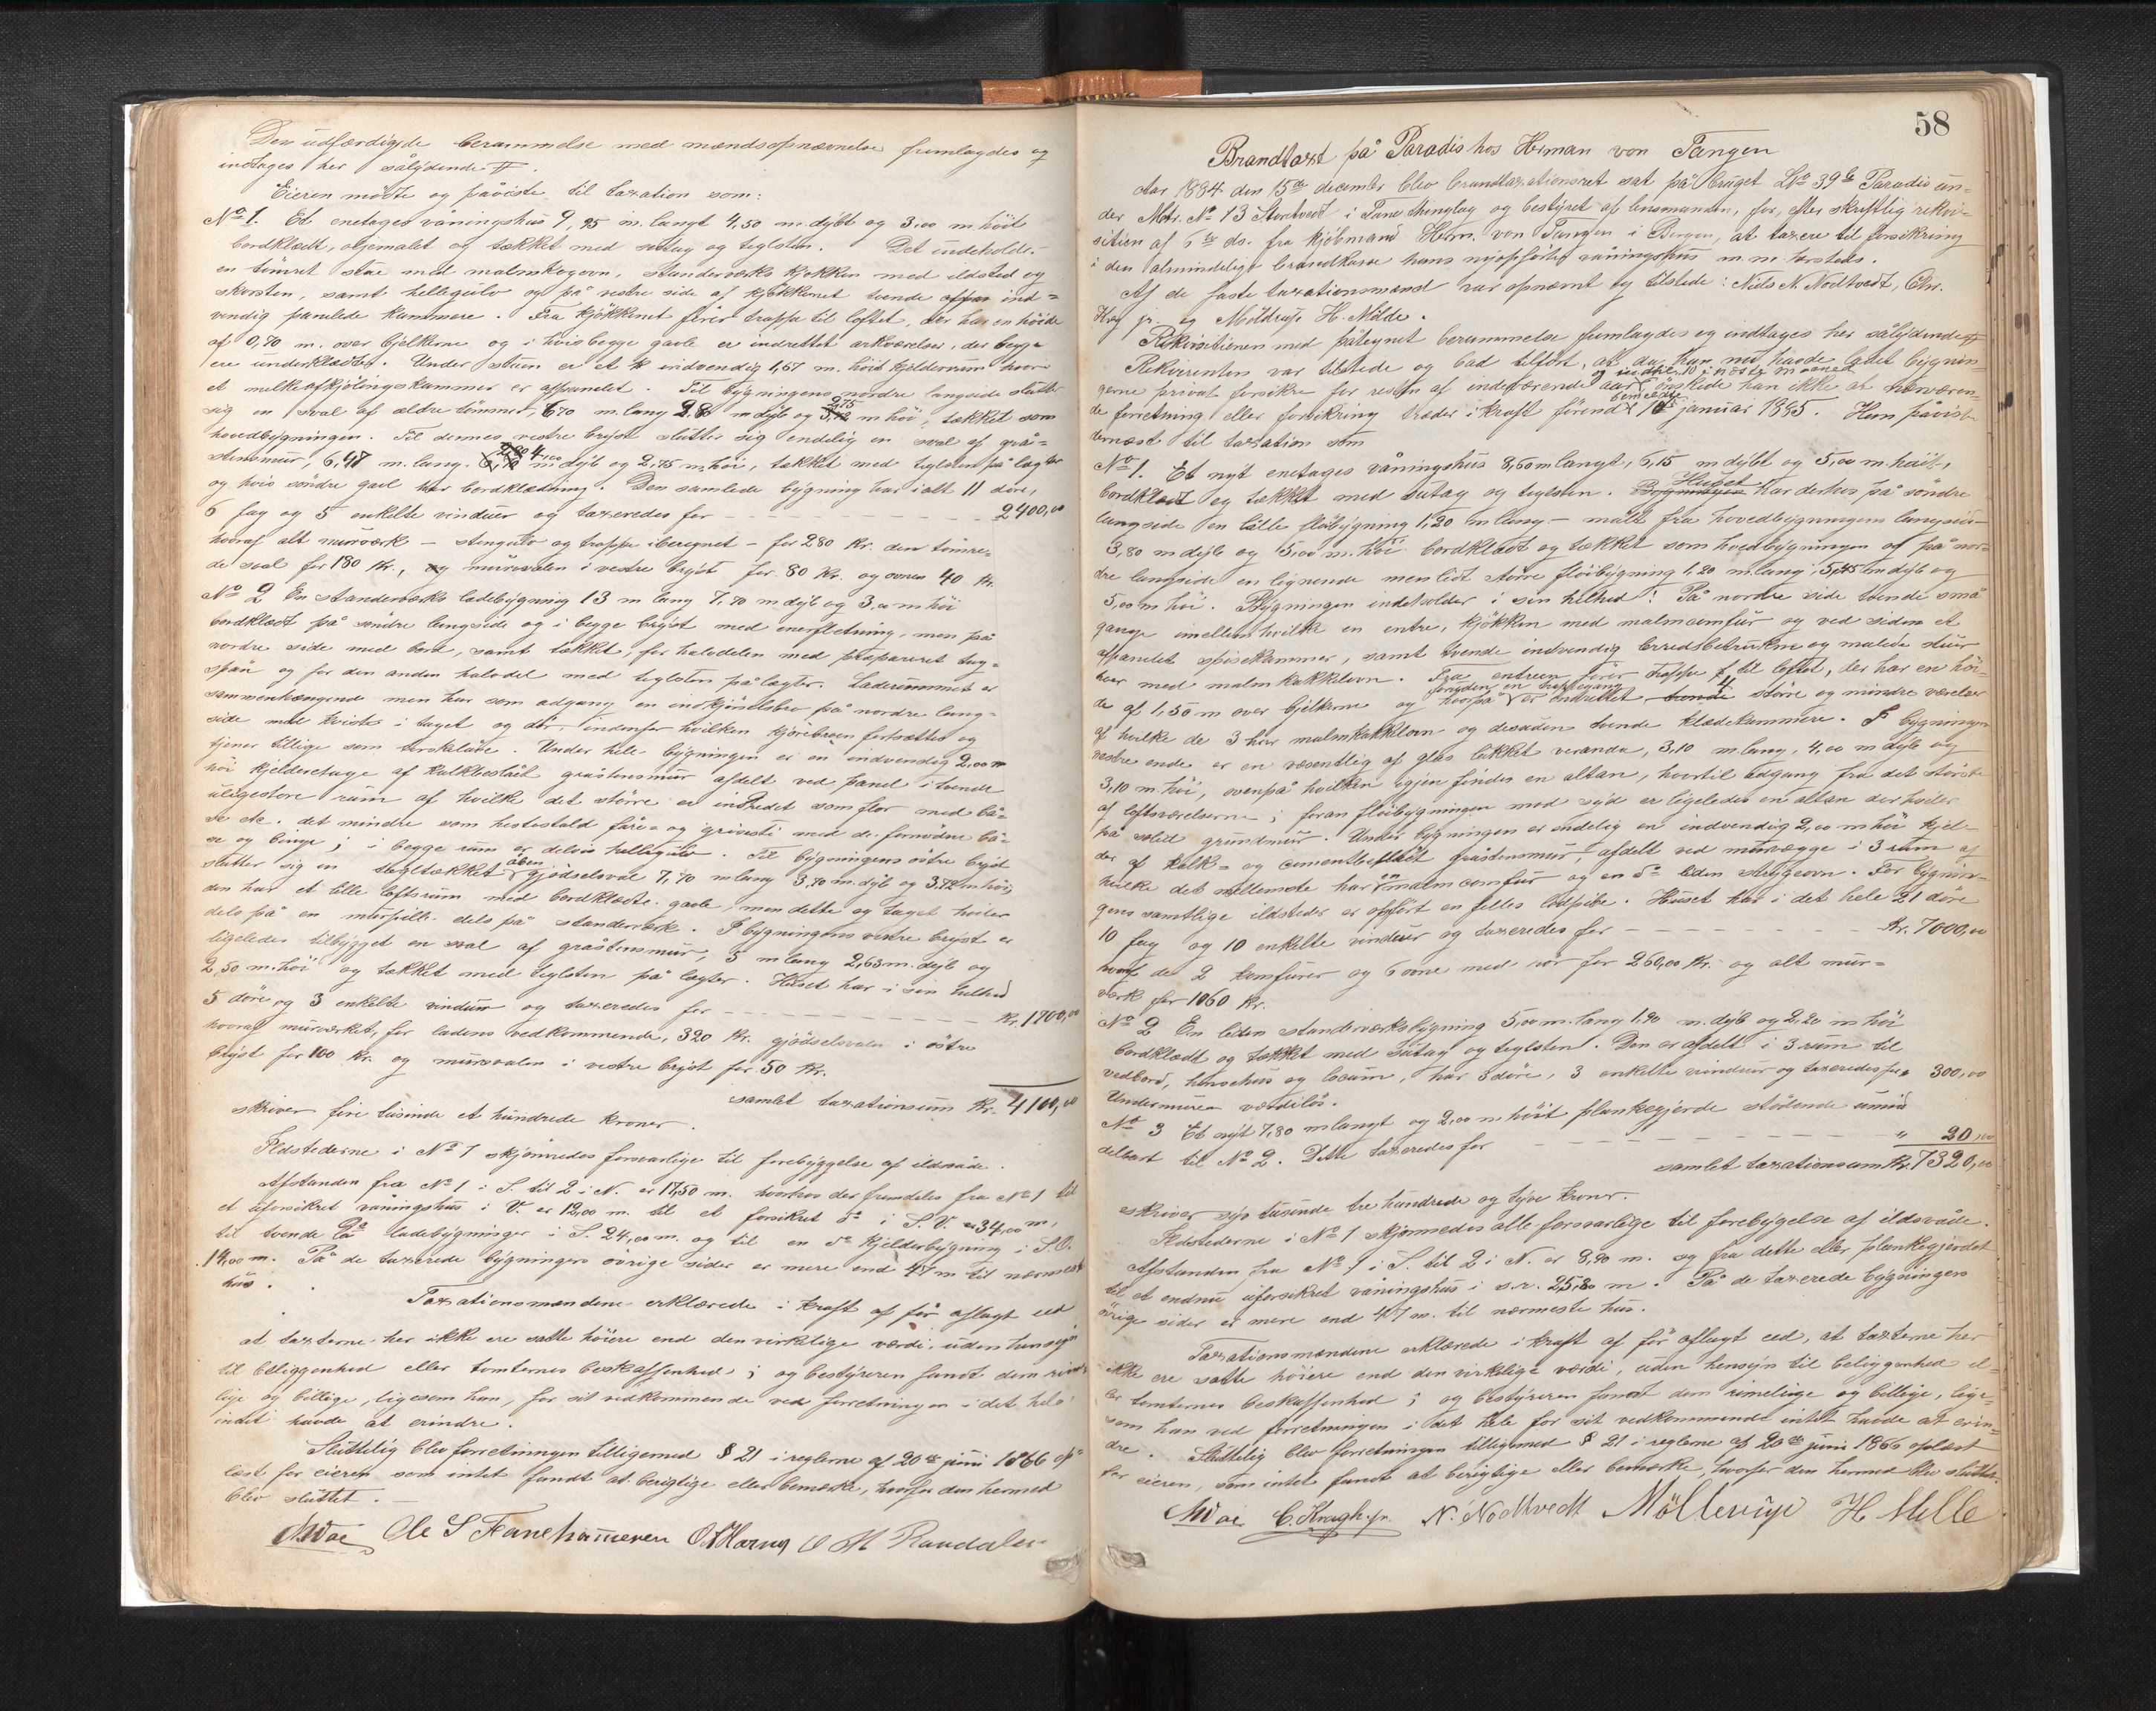 Den udfærdigede berammelse med mændsopnævnelse fremlagdes og
indtages her sålydende #.
Eieren mødte og påviste til taxation som:
No 1. Et enetages våningshus 9,95 m. langt 4,50 m. dybt og 3,00 m høit
bordklædt, oljemalet og tækket med sutag og teglsten. Det indeholder
en tømret stue med malmkogeovn, standerværks kjøkken med ildsted og
skorsten, samt hellegulv og på vestre side af kjøkkenet tvende ind=
vendig panelede kammere. Fra kjøkkenet fører trappe til loftet, der har en høide
af 0,70 m. over bjelkerne og i hvis begge gavle er indrettet værelser, der begge
ere underklædte. Under stuen er et indvendig 1,57 m. høit kjelderrum hvori
et melkeafkjølingskammer er afpanelet. Til bygningens nordre langside slutter
sig en sval af ældre tømmer, 6,70 m. lang 2,8 m dyb og 2,75 m høi, tækket som
hovedbygningen. Til dennes vestre bryst slutter sig endelig en sval af grå=
stensmur, 6,47 m. lang. 4,00 m dyb og 2,75 m. høi, tækket med teglsten på lægter
og hvis søndre gavl har bordklædning. Den samlede bygning har i alt 11 døre,
6 fag og 5 enkelte vinduer og taxeredes for 2400,00
hvoraf alt murværk - stengulv og trappe iberegnet - for 280 Kr. den tømre-
de sval for 180 Kr., og mursvalen i vestre bryst for 80 Kr. og ovnen 40 Kr.
No 2 En standerværks ladebygning 13 m lang 7,70 m dyb og 3,00 m høi
bordklædt på søndre langside og i begge bryst med enerfletning, men på
nordre side med bord, samt tækket, for halvdelen med præpareret tag=
spån og for den anden halvdel med teglsten på lægter. Laderummet er
sammenhængende men har som adgang en indkjørselsbro på nordre lang=
side med kvist i taget og dør, indenfor hvilken kjørebroen fortsættes og
tjener tillige som treskelåve. Under hele bygningen er en indvendig 2,00 m
høi kjelderetage af kalkbeslået gråstensmur afdelt ved panel i tvende
uligestore rum af hvilke det større er indredet som flor med bå=
se etc. det mindre som hestestald fåre= og grisesti med de fornødne bå=
se og binge; i begge rum er delvis hellegulv. Til bygningens østre bryst
slutter sig en tegltækket åben gjødselsval 7,70 m lang 3,70 m. dyb og 3,72 m høi,
den har et lille loftsrum med bordklædte gavle, men dette og taget hviler
dels på en murpille dels på standerværk. I bygningens vestre bryst er
ligeledes tilbygget en sval af gråstensmur, 5 m lang 2,63 m. dyb og
2,50 m. høi og tækket med teglsten på lægter. Huset har i sin helhed
5 døre og 3 enkelte vinduer og taxeredes for Kr. 1700,00
hvoraf murværket, for ladens vedkommende, 320 Kr. gjødselsvalen i østre
bryst for 100 Kr. og mursvalen i vestre bryst for 50 Kr.
samlet taxationssum Kr. 4100,00
skriver fire tusinde et hundrede kroner.
Ildstederne i No 1 skjønnedes forsvarlige til forebyggelse af ildsvåde.
Afstanden fra No 1 i S. til 2 i N. er 17,50 m. hvorhos der fremdeles fra No 1 til
et uforsikret våningshus i V. er 12,00 m. til et forsikret do i S.V. er 34,00 m,
til tvende do ladebygninger i S. 24,00 m. og til en do kjelderbygning i S.O.
14,00 m. På de taxerede bygningers øvrige sider er mere end 47 m til nærmeste
hus.
Taxationsmændene erklærede i kraft af før aflagt eed
at taxterne her ikke ere satte høiere end den virkelige værdi, uden hensyn
til beliggenhed eller tomternes beskaffenhed; og bestyreren fandt dem rime-
lige og billige, ligesom han, for sit vedkommende ved forretningen i det hele
intet havde at erindre.
Sluttelig blev forretningen tilligemed § 21 i reglerne af 20de juni 1866 op=
læst for eieren som intet fandt at berigtige eller bemærke, hvorfor den hermed
blev sluttet.
Ole S Fanehammeren O M Randalen
58
Brandtaxt på Paradis hos Herman von Tangen
Aar 1884 den 15de december blev brandtaxationsret sat på bruget Lno 39b Paradis un-
der Matr. No 13 Stortvedt i Fane thinglag og bestyret af lensmanden, for, efter skriftlig rekvi-
sition af 6te ds. fra kjøbmand Herm. von Tangen i Bergen, at taxere til forsikring
i den almindelige brandkasse hans nyopførte våningshus m.m. sammesteds.
Af de faste taxationsmænd var opnævnt og tilstede: Nils N. Nodtvedt, Chr.
Krag jr. og Møldrup H. Milde.
Rekvisitionen med påtegnet berammelse fremlagdes og indtages her sålydende #
Rekvirenten var tilstede og bad tilført, at da han nu havde ladet bygnin-
gerne privat forsikre for resten af indeværende aar og indtil 10 i næste måned ønskede han ikke at nærværen-
de forretning eller forsikring træder i kraft førend bemeldte 10 januar 1885. Han påviste
dernæst til taxation som
No 1. Et nyt enetages våningshus 8,60 m langt, 6,15 m dybt og 5,00 m. høit,
bordklædt og tækket med sutag og teglsten. Huset har derhos på søndre
langside en lille fløibygning 1,20 m lang - målt fra hovedbygningens langside -
3,80 m dyb og 5,00 m. høi bordklædt og tækket som hovedbygningen og på nor-
dre langside en lignende men lidt større fløibygning 1,20 m. lang, 5,45 m dyb og
5,00 m høi. Bygningen indeholder i sin helhed: På nordre side tvende små
gange imellem hvilke en entre, kjøkken med malmcomfur og ved siden et
afpanelet spisekammer, samt tvende indvendig lærredsbetrukne og malede stuer
hver med malm kakkelovn. Fra entreen fører trappe til loftet, der har en høi-
de af 1,50 m over bjelkerne og hvorpå foruden en trappegang er indrettet 4 større og mindre værelser
af hvilke de 3 har malmkakkelovn og desuden tvende klædekammere. I bygningens
vestre ende er en væsentlig af glas lukket veranda, 3,10 m. lang, 4,00 m dyb og
3,10 m høi, ovenpå hvilken igjen findes en altan, hvortil adgang fra det største
af loftsværelserne; foran fløibygningen mod syd er ligeledes en altan der hviler
på solid grundmur. Under bygningen er endelig en indvendig 2,00 m høi kjel-
der af kalk= og cementbeslåt gråstensmur, afdelt ved murvægge i 3 rum af
hvilke det mellemste har en malm comfur og en do liden strygeovn. For bygnin-
gens samtlige ildsteder er opført en fælles lodpibe. Huset har i det hele 21 døre
10 fag og 10 enkelte vinduer og taxeredes for Kr. 7000,00
hvoraf de 2 komfurer og 6 ovne med rør for 260,00 Kr. og alt mur=
værk for 1060 Kr.
No 2 En liden standerværksbygning 5,00 m. lang 1,90 m. dyb og 2,20 m høi
bordklædt og tækket med sutag og teglsten. Den er afdelt i 3 rum til
vedbod, hønsehus og locum, har 3 døre, 3 enkelte vinduer og taxeredes for 300,00
Undermuren værdiløs.
No 3 Et nyt 7,80 m langt og 2,00 m høit plankegjerde stødende umid-
delbart til No 2. Dette taxeredes for " 20,00
samlet taxationssum Kr. 7320,00
skriver syv tusinde tre hundrede og tyve kroner.
Ildstederne i No 1 skjønnedes alle forsvarlige til forebyggelse af ildsvåde.
Afstanden fra No 1 i S. til 2 i N. er 8,90 m. og fra dette eller plankegjerdet
til et endnu uforsikret våningshus i s.v. 25,80 m. På de taxerede bygningers
øvrige sider er mere end 47 m. til nærmeste hus.
Taxationsmændene erklærede i kraft af før aflagt eed, at taxterne her
ikke ere satte høiere end den virkelige værdi, uden hensyn til beliggenhed el-
ler tomternes beskaffenhed; og bestyreren fandt dem rimelige og billige, lige-
som han ved forretningen i det hele for sit vedkommende intet havde at erin-
dre. Sluttelig blev forretningen tilligemed § 21 i reglerne af 20de juni 1866 oplæst
for eieren, som intet fandt at berigtige eller bemærke, hvorfor den hermed blev sluttet.
C. Kragh jr. N. Nodtvedt Møllerup H Milde